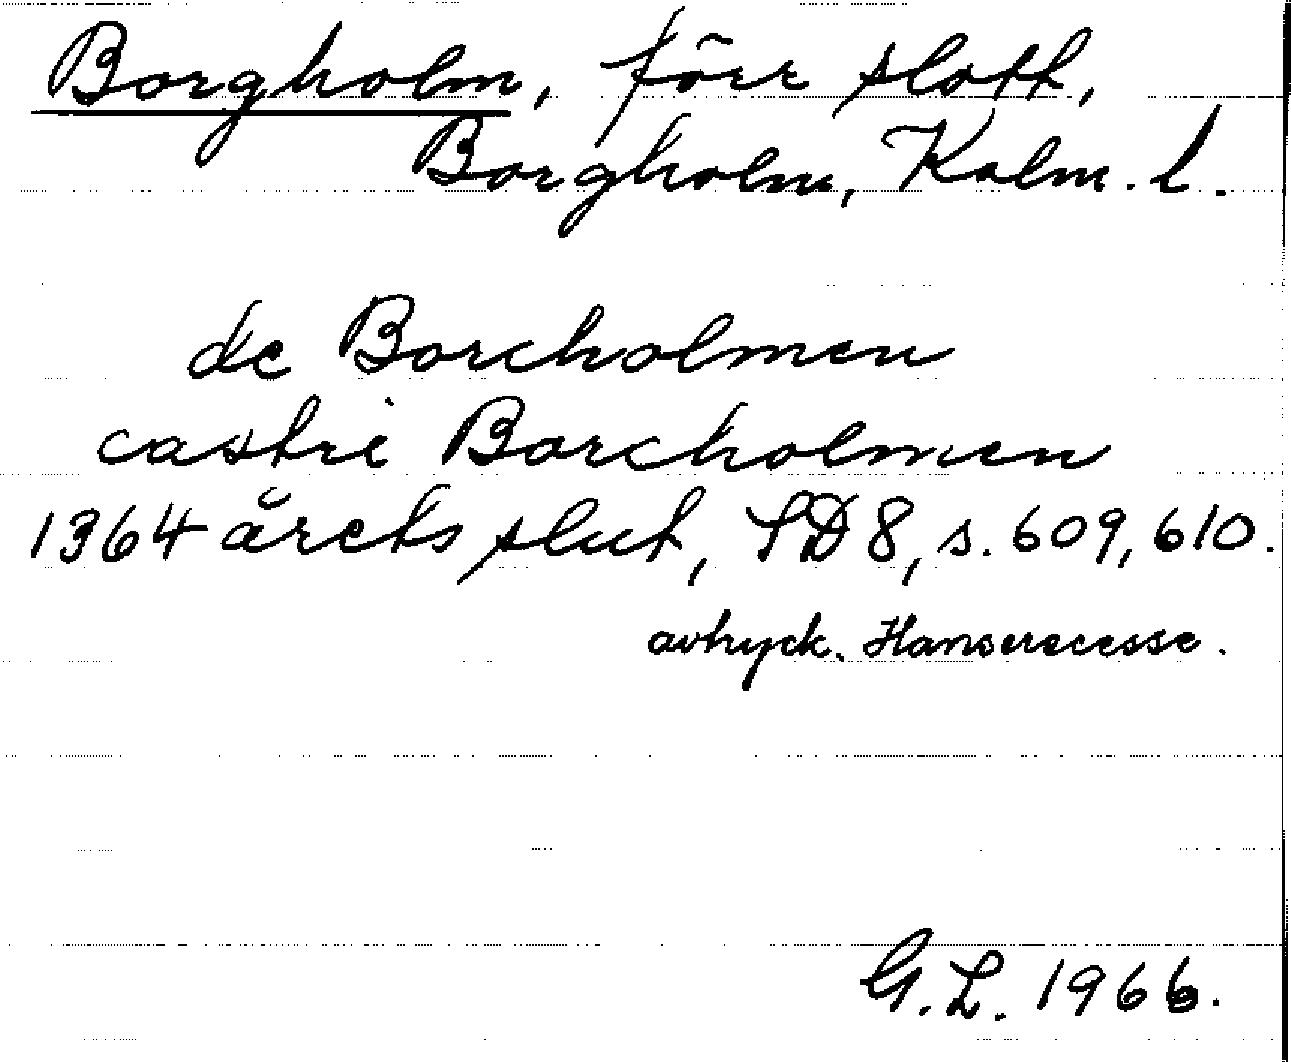 Borgholm, förr slott,
Borgholm, Kalm. l.
de Borcholmen
castri Borcholmen
1364 årets slut, SD 8, s. 609, 610.
avtryck. Hanserecesse.
G.L. 1966.